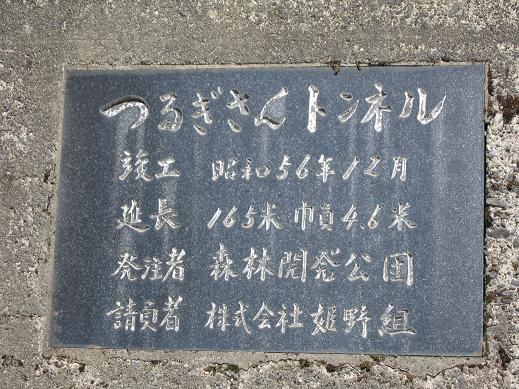 つるぎさんトンネル
竣工 昭和56年12月
延長 165米 幅員4.6米
発注者 森林開発公団
請負者 株式会社姫野組